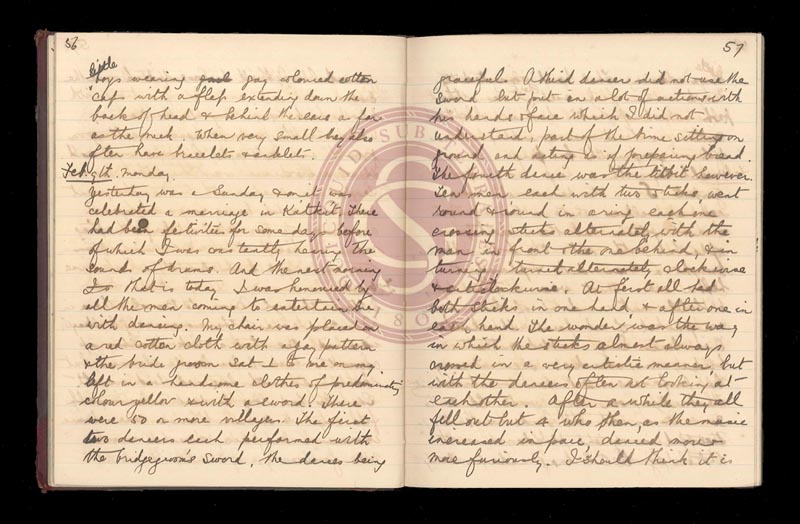 56
little
boys wearing gay coloured cotton
caps with a flap extending down the
back of head & behind the ears as far
as the neck. When very small boys also
often have bracelets & anklets.
Feb. 9th. Monday.
Yesterday was a Sunday & on it was
celebrated a marriage in Katkut. There
had been festivities for some days before
of which I was constantly hearing the
sounds of drums. And the next morning
that is today, I was honoured by
all the men coming to entertain me
with dancing. My chair was placed on
a red cotton cloth with a gay pattern
& the bride groom sat on my
left in a handsome clothes of predominating
colour yellow & with a sword. There
were 50 or more villagers. The first
two dancers each performed with
the bridegroom's sword, the dances being
57
graceful. A third dancer did not use the
sword but put in a lot of actions with
his hands & face which I did not
understand, part of the time sitting on
ground and acting as if preparing bread.
The fourth dance was the titbit however.
Ten men, each with two sticks, went
round & round in a ring each one
crossing sticks alternately with the
man in front & the one behind, & in
turning, turned alternately clockwise
& anticlockwise. At first all had
both sticks in one hand & after one in
each hand. The wonder was the way
in which the sticks almost always
crossed in a very artistic manner, but
with the dancers often not looking at
each other. After a while they all
fell out but 4 who then, as the music
increased in pace, danced more &
more furiously. I should think it is